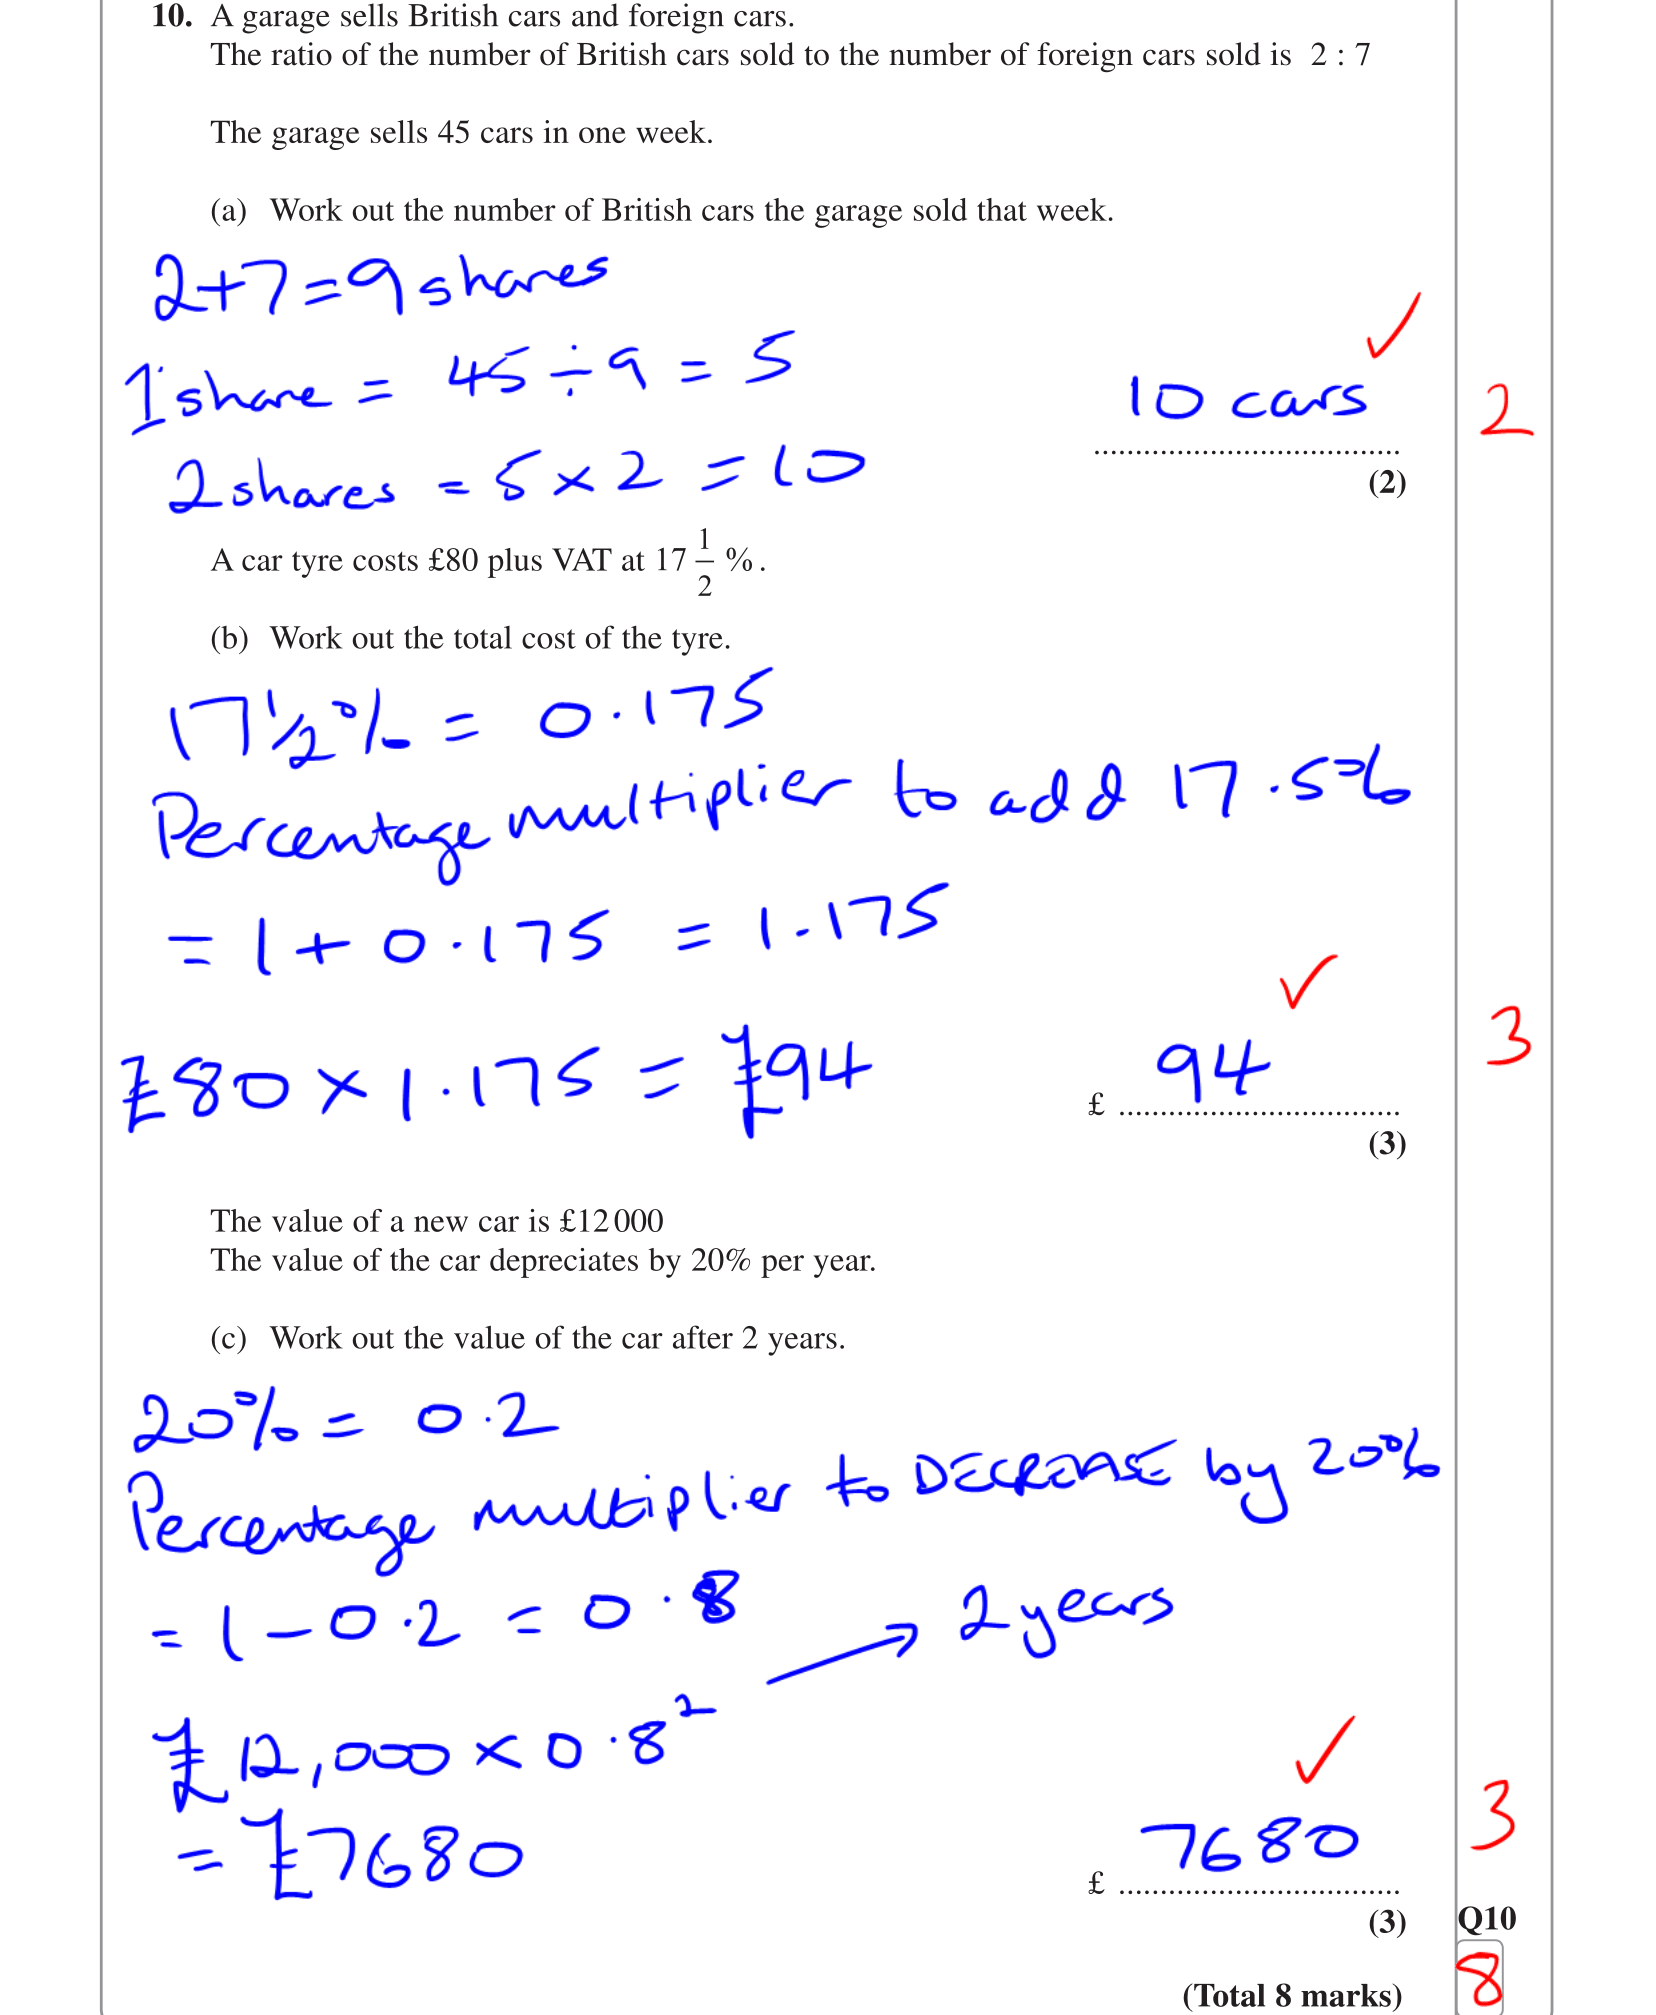 10. A garage sells British cars and foreign cars.
The ratio of the number of British cars sold to the number of foreign cars sold is 2 : 7
The garage sells 45 cars in one week.
(a) Work out the number of British cars the garage sold that week.
2+7=9 shares
1 share = 45 ÷ 9 = 5
10 cars ✓ 2
2 shares = 5 × 2 = 10
(2)
A car tyre costs £80 plus VAT at 17 1/2 %.
(b) Work out the total cost of the tyre.
17 1/2 % = 0.175
Percentage multiplier to add 17.5%
= 1 + 0.175 = 1.175
£80 × 1.175 = £94
£ 94 ✓ 3
(3)
The value of a new car is £12 000
The value of the car depreciates by 20% per year.
(c) Work out the value of the car after 2 years.
20% = 0.2
Percentage multiplier to DECREASE by 20%
= 1 – 0.2 = 0.8
→ 2 years
£12,000 × 0.8²
= £7680
£ 7680 ✓ 3
(3) Q10
(Total 8 marks) 8